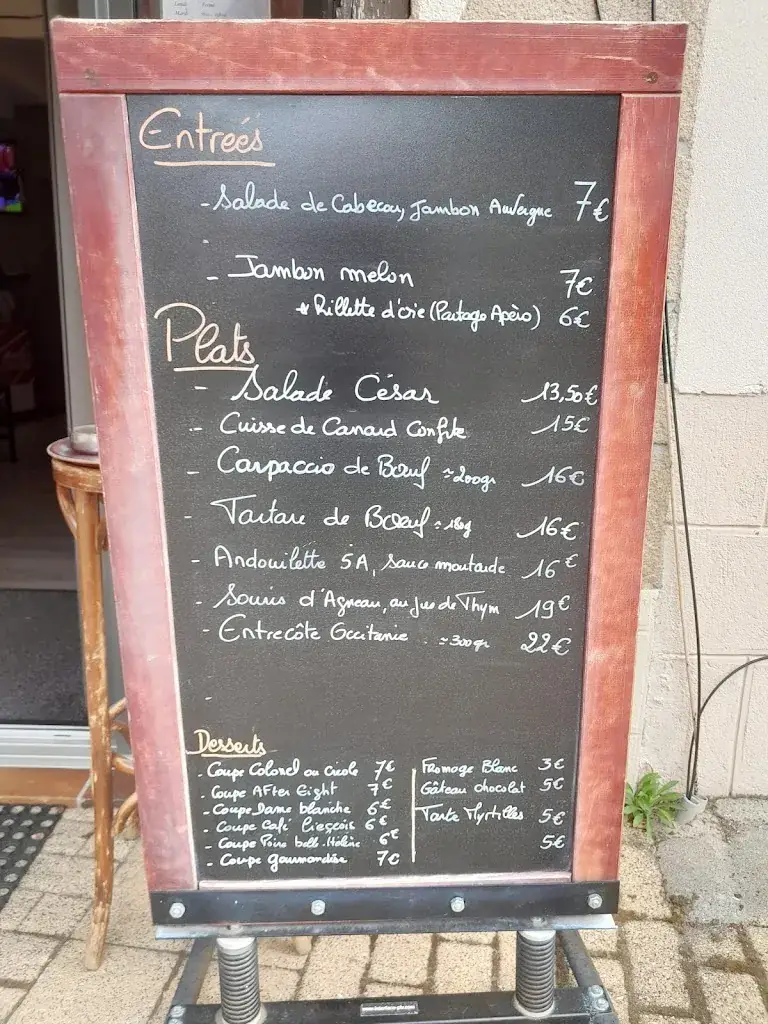 Entreés
- Salade de Cabecou, Jambon Auvergne 7€
- Jambon melon 7€
* Rillette d'oie (Partage Apéro) 6€
Plats
- Salade César 13,50€
- Cuisse de Canard Confite 15€
- Carpaccio de Bœuf ≈200gr 16€
- Tartare de Bœuf ≈180g 16€
- Andouillette 5A, sauce moutarde 16€
- Souris d'Agneau, au jus de Thym 19€
- Entrecôte Occitanie ≈300gr 22€
Desserts
- Coupe Colonel ou Creole 7€
- Coupe After Eight 7€
- Coupe Dame blanche 6€
- Coupe Café liégeois 6€
- Coupe Poire belle-Hélène 6€
- Coupe gourmandise 7€
Fromage Blanc 3€
Gâteau chocolat 5€
Tarte Myrtilles 5€
5€